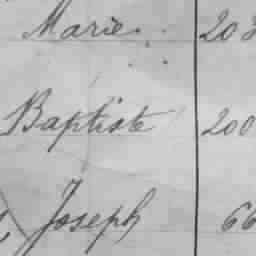 Marie 203
Baptiste 200
Joseph 66